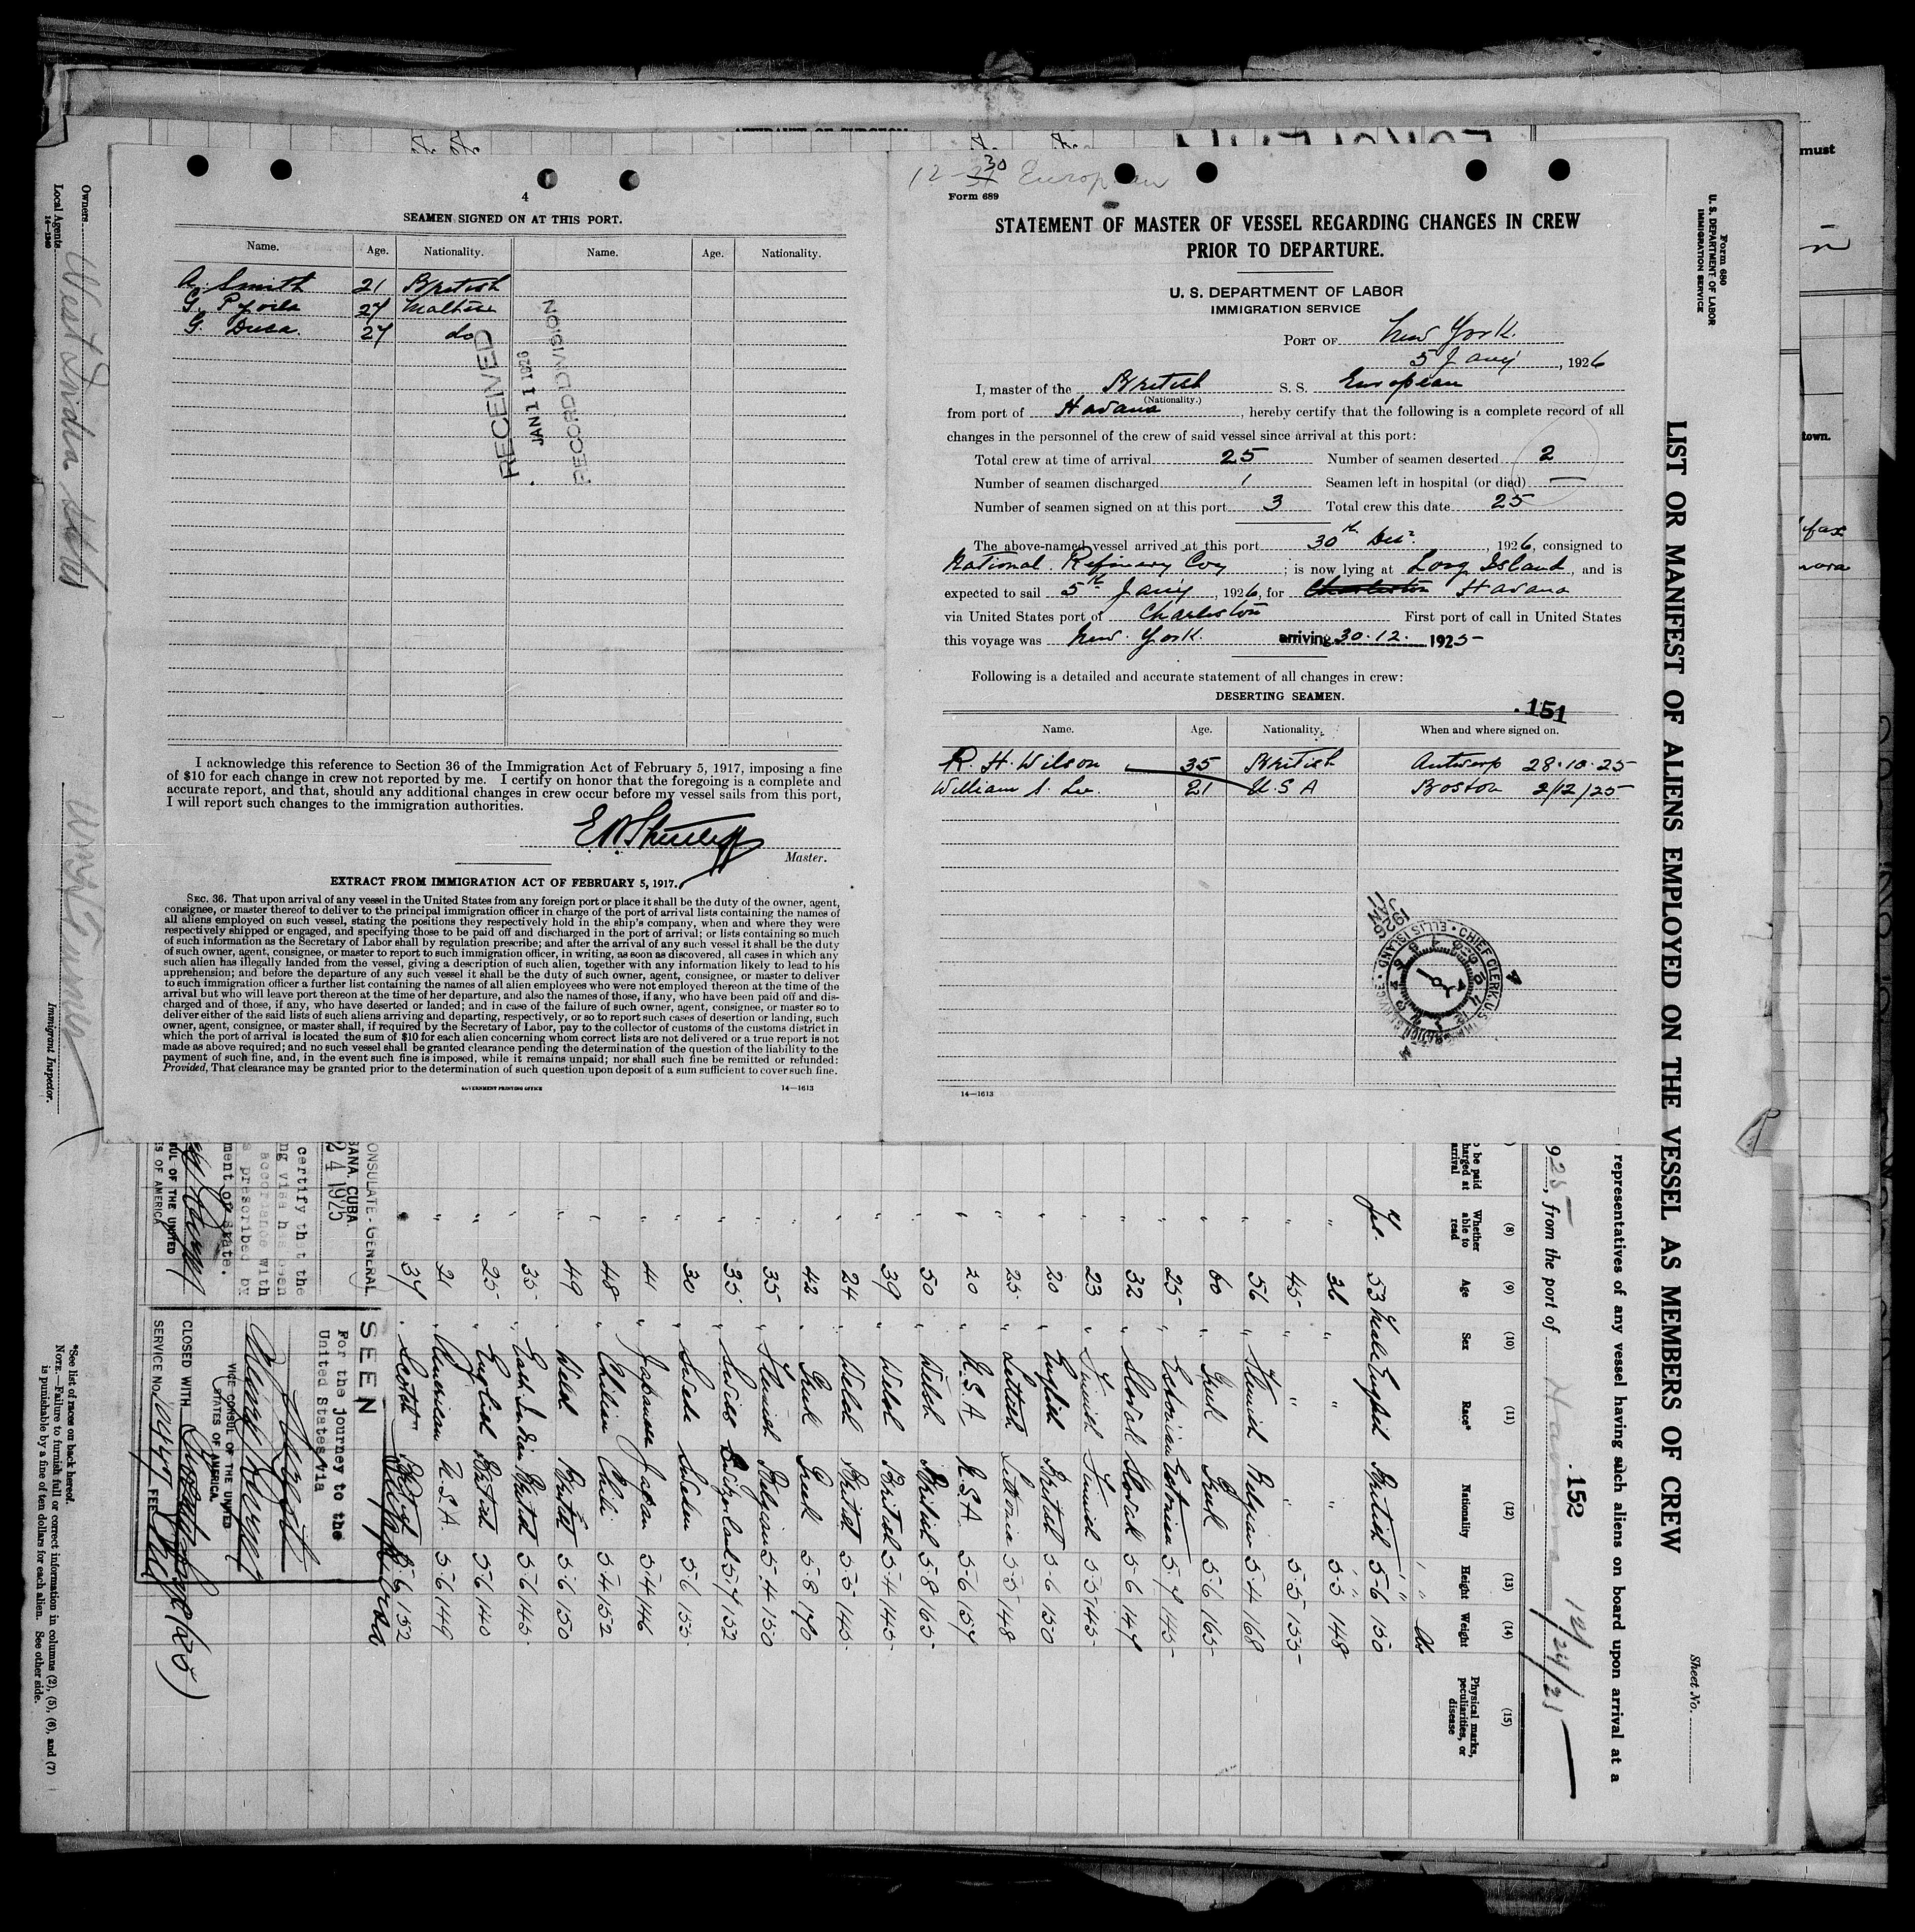 4
SEAMEN SIGNED ON AT THIS PORT.
Name. Age. Nationality. Name. Age. Nationality.
A. Smith 21 British
G. 27 Maltese
G. Dusa. 27 do
RECEIVED
JAN 11 1926
RECORD DIVISION
I acknowledge this reference to Section 36 of the Immigration Act of February 5, 1917, imposing a fine
of $10 for each change in crew not reported by me. I certify on honor that the foregoing is a complete and
accurate report, and that, should any additional changes in crew occur before my vessel sails from this port,
I will report such changes to the immigration authorities.
Master.
EXTRACT FROM IMMIGRATION ACT OF FEBRUARY 5, 1917.
SEC. 36. That upon arrival of any vessel in the United States from any foreign port or place it shall be the duty of the owner, agent,
consignee, or master thereof to deliver to the principal immigration officer in charge of the port of arrival lists containing the names of
all aliens employed on such vessel, stating the positions they respectively hold in the ship's company, when and where they were
respectively shipped or engaged, and specifying those to be paid off and discharged in the port of arrival; or lists containing so much
of such information as the Secretary of Labor shall by regulation prescribe; and after the arrival of any such vessel it shall be the duty
of such owner, agent, consignee, or master to report to such immigration officer, in writing, as soon as discovered, all cases in which any
such alien has illegally landed from the vessel, giving a description of such alien, together with any information likely to lead to his
apprehension; and before the departure of any such vessel it shall be the duty of such owner, agent, consignee, or master to deliver
to such immigration officer a further list containing the names of all alien employees who were not employed thereon at the time of the
arrival but who will leave port thereon at the time of her departure, and also the names of those, if any, who have been paid off and dis-
charged and of those, if any, who have deserted or landed; and in case of the failure of such owner, agent, consignee, or master so to
deliver either of the said lists of such aliens arriving and departing, respectively, or so to report such cases of desertion or landing, such
owner, agent, consignee, or master shall, if required by the Secretary of Labor, pay to the collector of customs of the customs district in
which the port of arrival is located the sum of $10 for each alien concerning whom correct lists are not delivered or a true report is not
made as above required; and no such vessel shall be granted clearance pending the determination of the question of the liability to the
payment of such fine, and, in the event such fine is imposed, while it remains unpaid; nor shall such fine be remitted or refunded:
Provided, That clearance may be granted prior to the determination of such question upon deposit of a sum sufficient to cover such fine.
GOVERNMENT PRINTING OFFICE 14—1613
12-30 European
Form 689
STATEMENT OF MASTER OF VESSEL REGARDING CHANGES IN CREW
PRIOR TO DEPARTURE.
U. S. DEPARTMENT OF LABOR
IMMIGRATION SERVICE
PORT OF New York.
5 Jany, 1926
I, master of the British S. S. European
(Nationality.)
from port of Havana, hereby certify that the following is a complete record of all
changes in the personnel of the crew of said vessel since arrival at this port:
Total crew at time of arrival 25 Number of seamen deserted 2
Number of seamen discharged 1 Seamen left in hospital (or died) —
Number of seamen signed on at this port 3 Total crew this date 25
The above-named vessel arrived at this port 30th Decr, 1926, consigned to
National Refinery Coy; is now lying at Long Island, and is
expected to sail 5th Jany, 1926, for Charleston Havana
via United States port of Charleston First port of call in United States
this voyage was New York. arriving 30.12. 1925
Following is a detailed and accurate statement of all changes in crew:
DESERTING SEAMEN.
151
Name. Age. Nationality. When and where signed on.
R. H. Wilson 35 British Antwerp 28.10.25
William S. Lee. 21 U S A Boston 2/12/25
1926 JAN 11
CHIEF CLERK U.S. IMMIGRATION SERVICE • ELLIS ISLAND
14—1613
Form 680
U. S. DEPARTMENT OF LABOR
IMMIGRATION SERVICE
Sheet No.
LIST OR MANIFEST OF ALIENS EMPLOYED ON THE VESSEL AS MEMBERS OF CREW
representatives of any vessel having such aliens on board upon arrival at a
925, from the port of Havana 12/24/25
152
(8) (9) (10) (11) (12) (13) (14) (15)
be paid
arrival
Whether able to read Age Sex Race* Nationality Height Weight Physical marks, peculiarities, or disease
lbs
Yes. 53 Male English British 5-6 150
" 26 " " " 5-5 148
" 45 " " " 5-5 155
" 56 " Flemish Belgian 5-4 168
" 60 " Greek Greek 5-6 165
" 25 " Estonian Estonian 5-7 145
" 32 " Slovak Slovak 5-6 147
" 23 " Finnish Finnish 5-5 145
" 20 " English British 5-6 150
" 25 " 5-5 148
" 20 " U.S.A. U.S.A. 5-6 157
" 50 " Welsh British 5-8 165
" 39 " Welsh British 5-4 145
" 24 " Welsh British 5-5 145
" 42 " Greek Greek 5-8 170
" 35 " Flemish Belgian 5-4 150
" 35 " Swiss 5-7 152
" 30 " Swede Sweden 5-6 155
" 41 " Japanese Japan 5-4 146
" 48 " Chilian Chili 5-4 152
" 49 " Welsh British 5-6 150
" 35 " East Indian British 5-6 145
" 25 " English British 5-6 140
" 21 " American U.S.A. 5-6 149
" 37 " Scotch British 5-6 152
ONSULATE-GENERAL
BANA CUBA.
24 1925
certify that the
ng visa has been
accordance with
s prescribed by
ment of State.
UL OF THE UNITED
ES OF AMERICA
SEEN
For the journey to the
United States via
VICE CONSUL OF THE UNITED
STATES OF AMERICA.
CLOSED WITH
SERVICE NO. FEE
*See list of races on back hereof.
NOTE.—Failure to furnish full or correct information in columns (2), (5), (6), and (7)
is punishable by a fine of ten dollars for each alien. See other side.
Owners West India
Local Agents
14—1240
Immigrant Inspector.
must
town.